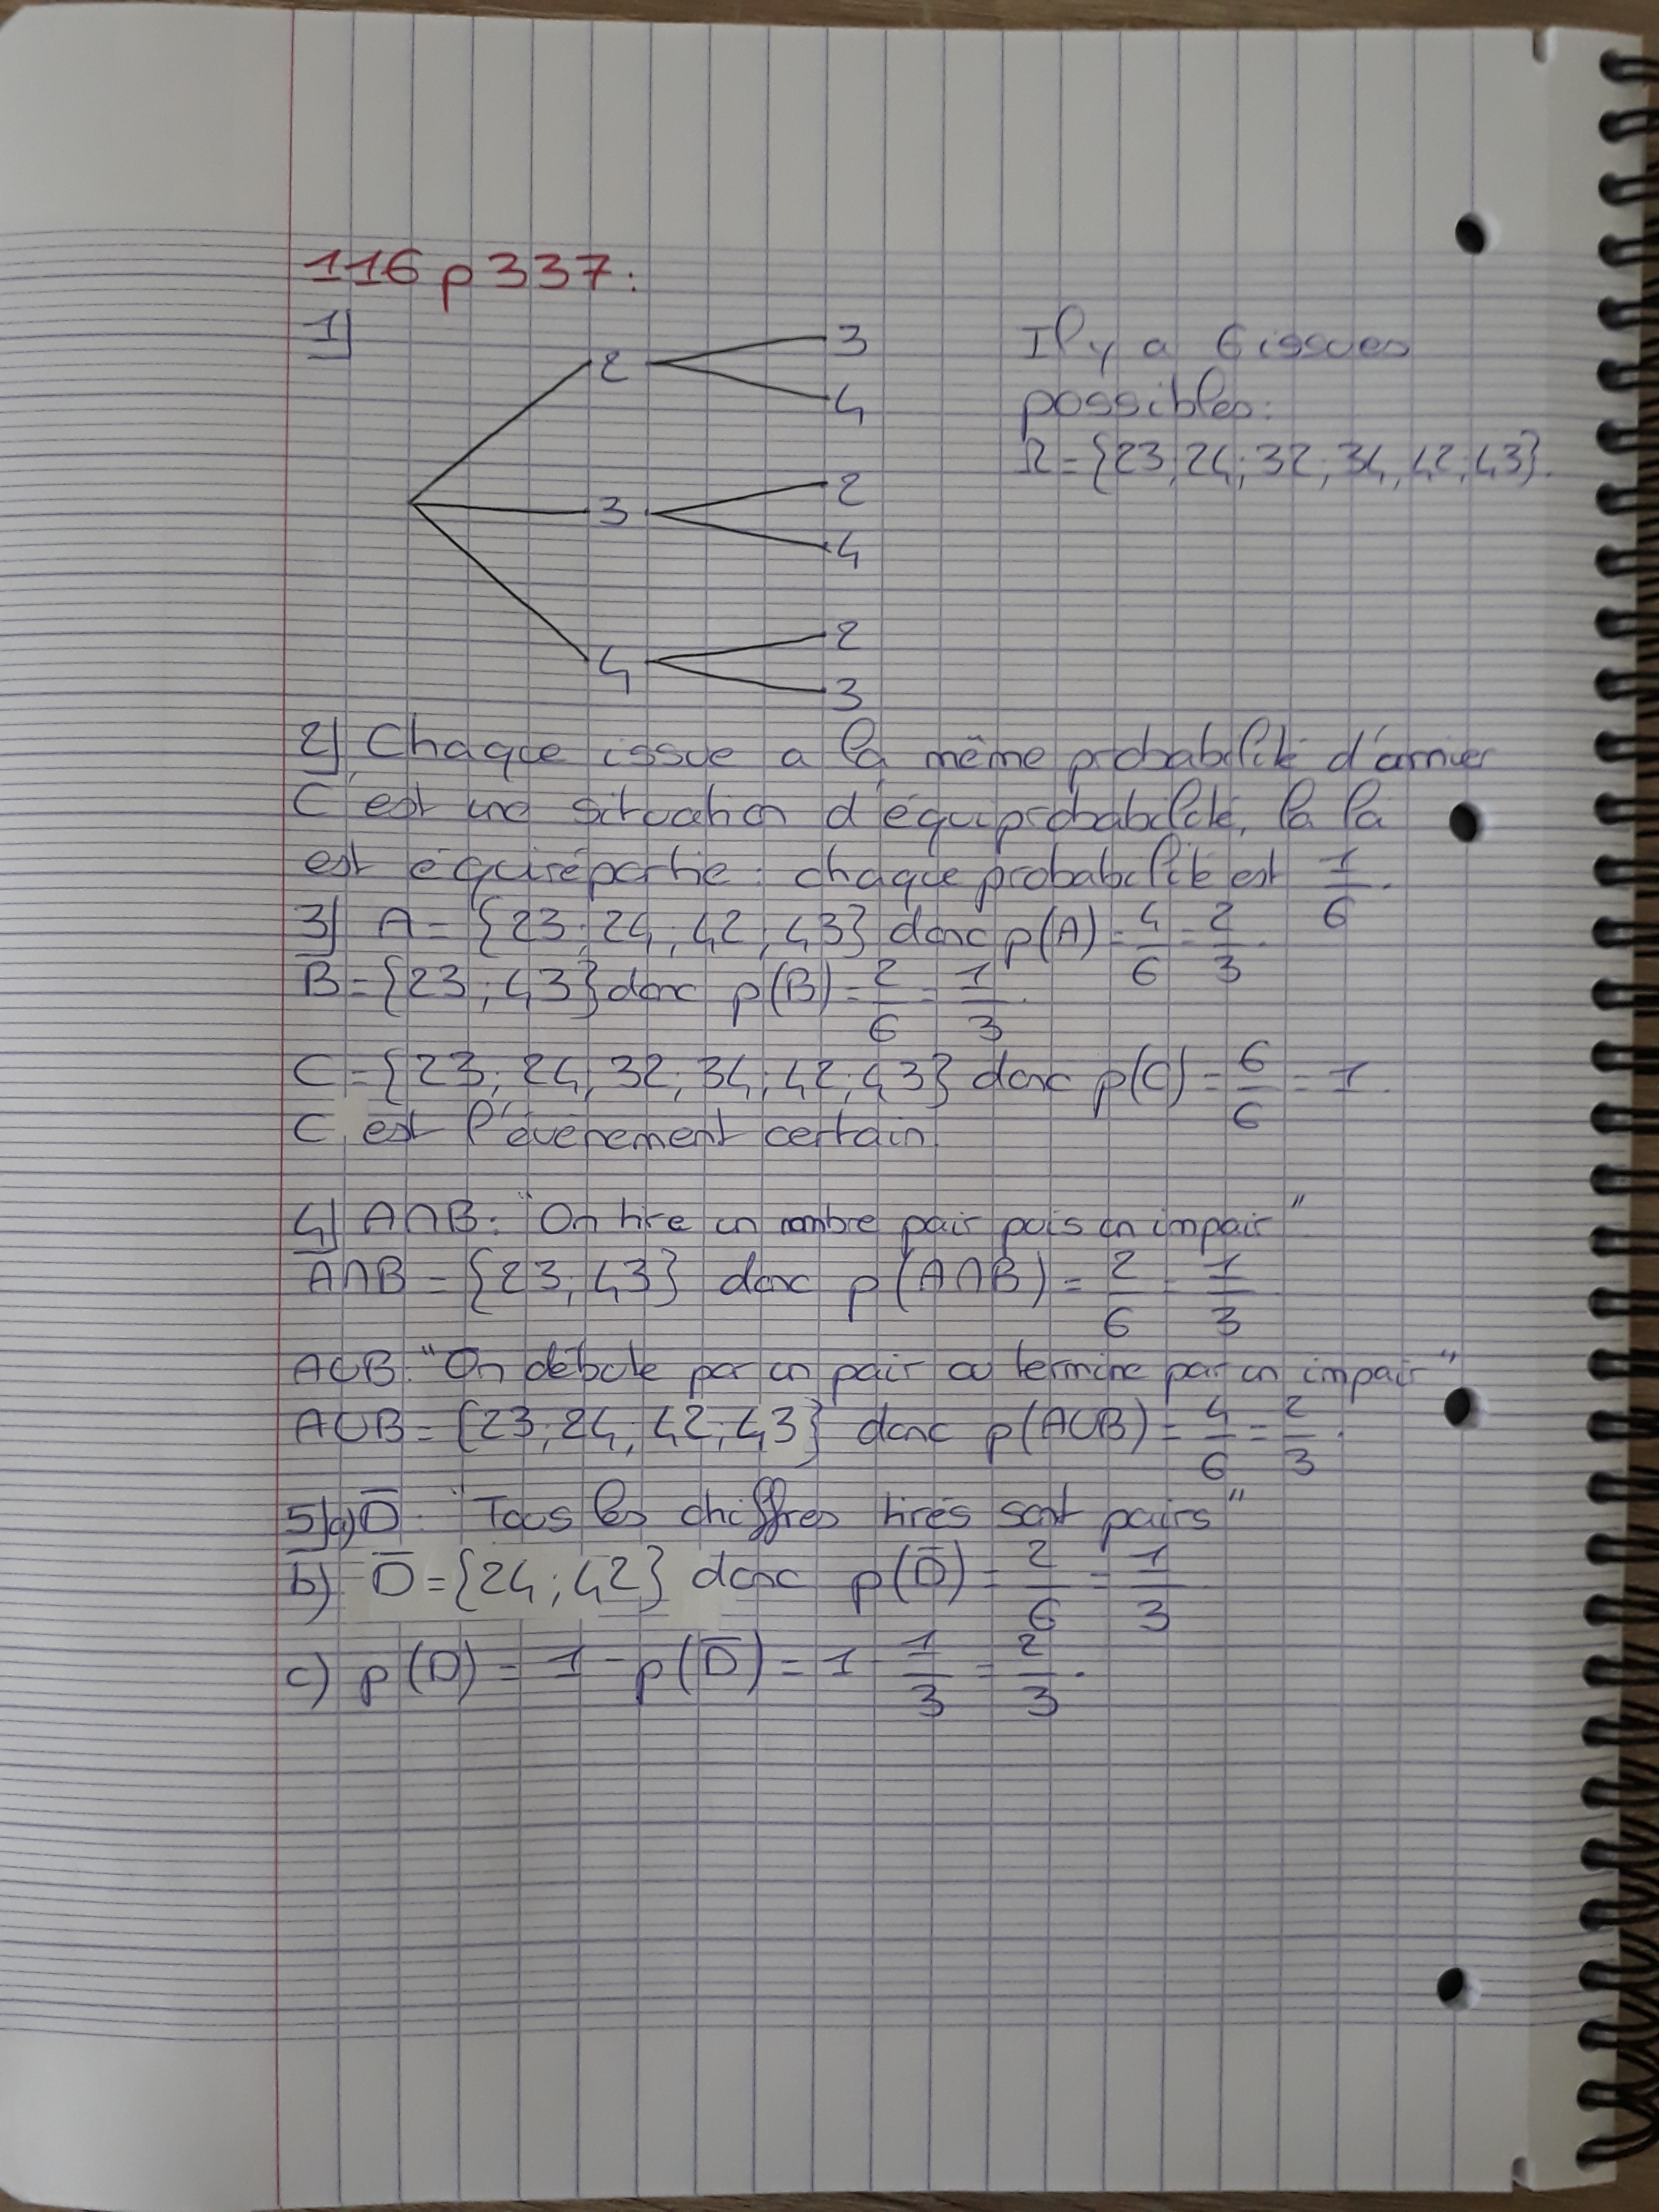 116 p 337:
1)
2
3
4
3
2
4
4
2
3
Il y a 6 issues
possibles:
Ω={23;24;32;34;42;43}.
2) Chaque issue a la même probabilité d'arriver
C'est une situation d'équiprobabilité, la la
est équirépartie : chaque probabilité est 1/6.
3) A = {23;24;42;43} donc p(A)=4/6=2/3.
B={23;43} donc p(B)=2/6=1/3.
C={23;24;32;34;42;43} donc p(C)=6/6=1.
C est l'évènement certain.
4) A∩B: "On tire un nombre pair puis un impair"
A∩B = {23;43} donc p(A∩B)=2/6=1/3
A∪B: "On débute par un pair ou termine par un impair"
A∪B = {23;24;42;43} donc p(A∪B)=4/6=2/3.
5)a) D̅: "Tous les chiffres tirés sont pairs"
b) D̅={24;42} donc p(D̅)=2/6=1/3
c) p(D)=1-p(D̅)=1-1/3=2/3.